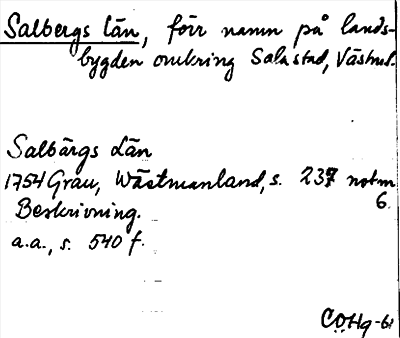 Salbergs län, förr namn på lands-
bygden omkring Sala stad, Västml.
Salbärgs Län
1754 Grau, Wästmanland, s. 237 not m
6.
Beskrivning.
a.a., s. 540 f.